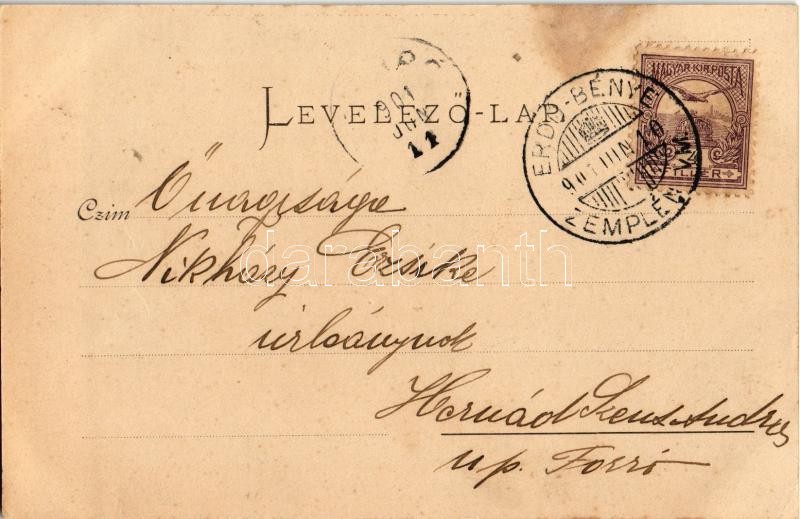 MAGYAR KIR. POSTA
FILLÉR
ERDŐ-BÉNYE
901 JUN 10
ZEMPLÉN VM
901
JUN
11
LEVELEZŐ-LAP.
Czim
Őnagysága
Nikházy Erzsike
úrleánynak
Hernád Szent András
u. p. Forró
darabanth